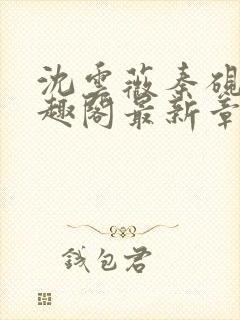 沈云薇秦砚
趣阁最新章
钱包君